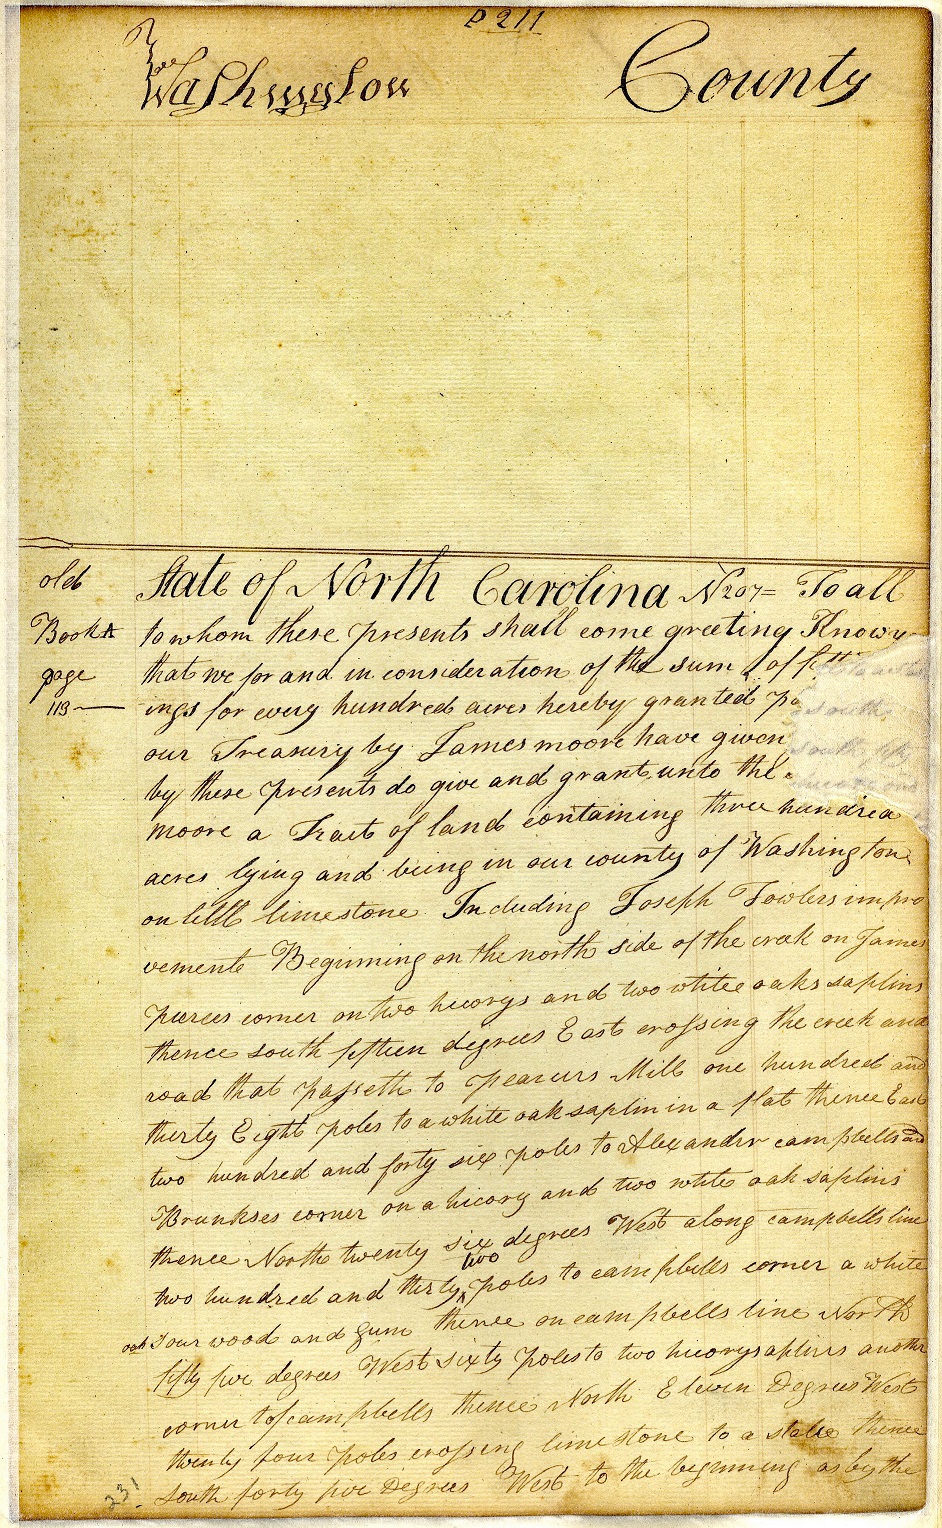 P 211
Washington County
old State of North Carolina No 207= To all
Book A to whom these presents shall come greeting Know y
page that we for and in consideration of the sum of
113 — ings for every hundred acres hereby granted pa
our Treasury by James moore have given
by these presents do give and grant unto the
moore a Tract of land containing three hundred
acres lying and being in our county of Washington
on little limestone Including Joseph Fowlers impro
vements Beginning on the north side of the creek on James
pierces corner on two hicorys and two white oaks saplins
thence south fifteen degrees East crossing the creek and
road that passeth to pearces Mill one hundred and
thirty Eight poles to a white oak saplin in a flat thence East
two hundred and forty six poles to Alexandr campbells and
corner on a hicory and two white oak saplins
thence North twenty six degrees West along campbells line
two
two hundred and thirty ^ poles to campbells corner a white
oak Sour wood and gum thence on campbells line North
fifty five degrees West sixty poles to two hicory saplins another
corner of campbells thence North Eleven Degrees West
twenty four poles crossing limestone to a stake thence
South forty five Degrees West to the beginning as by the
231